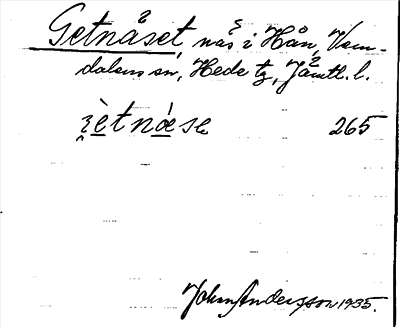 Getnåset, näs i Hån, Vem-
dalens sn, Hede tg, Jämtl. l.
265
John Andersson 1935.